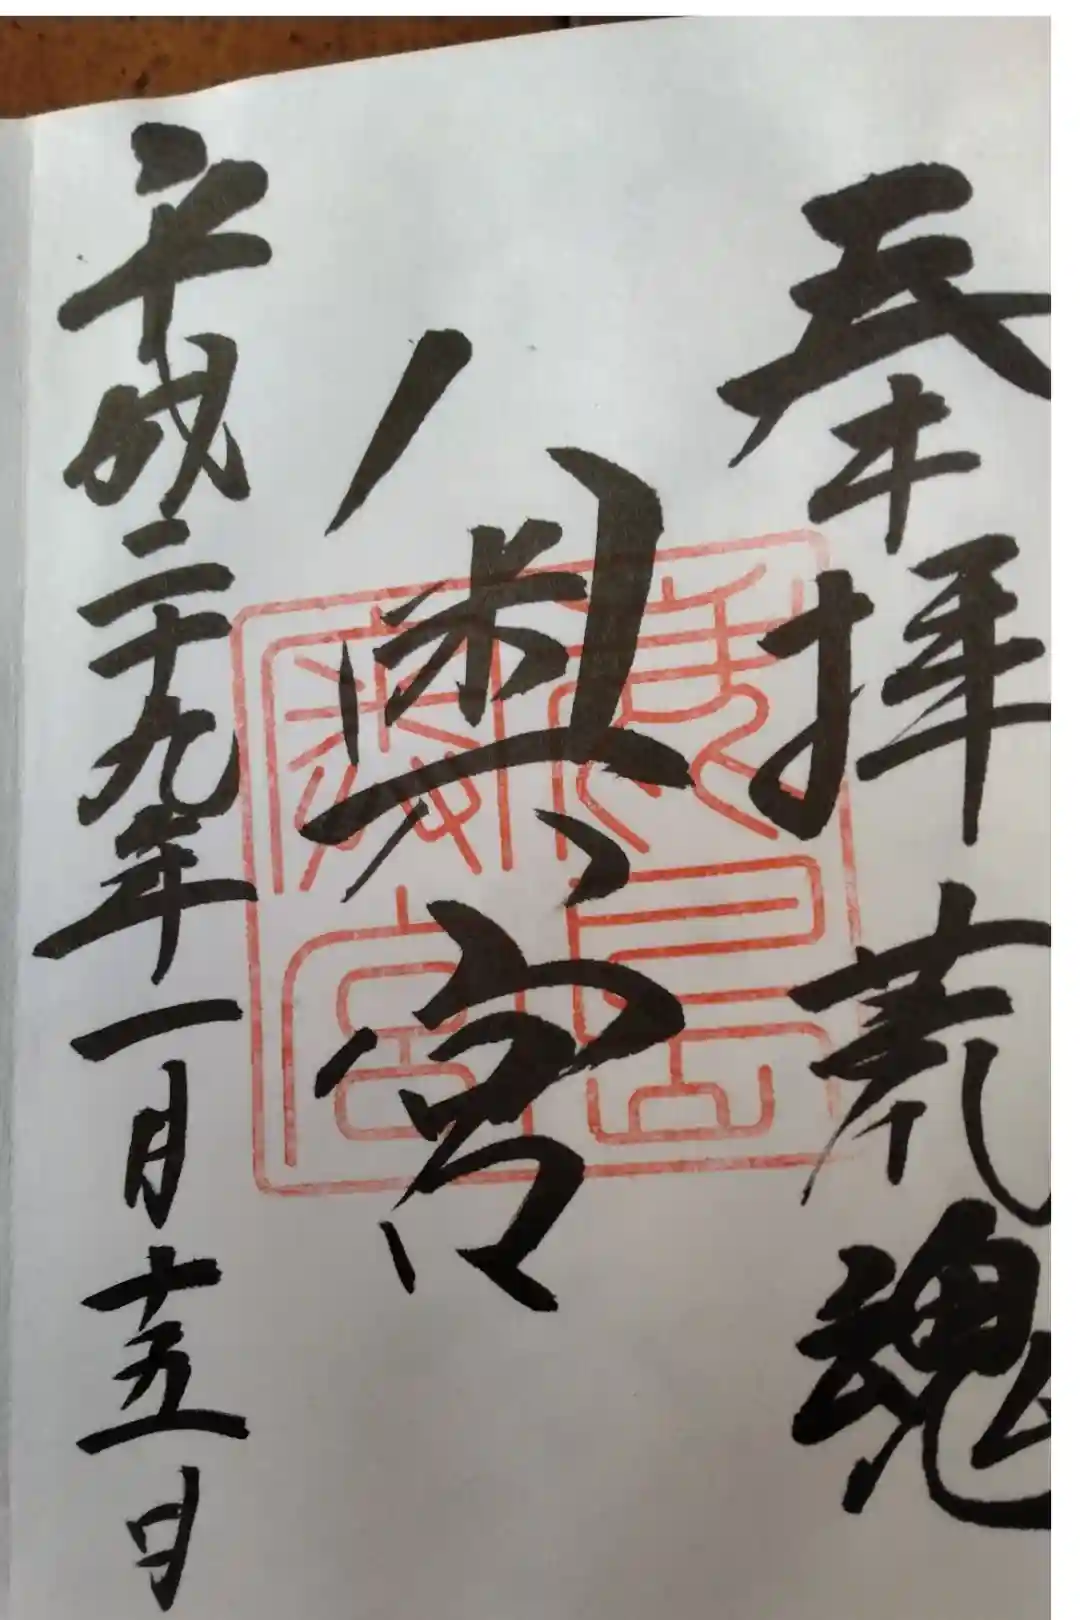 奉拝 荒魂
奥宮
平成二十九年一月十五日
鹿島
奥宮